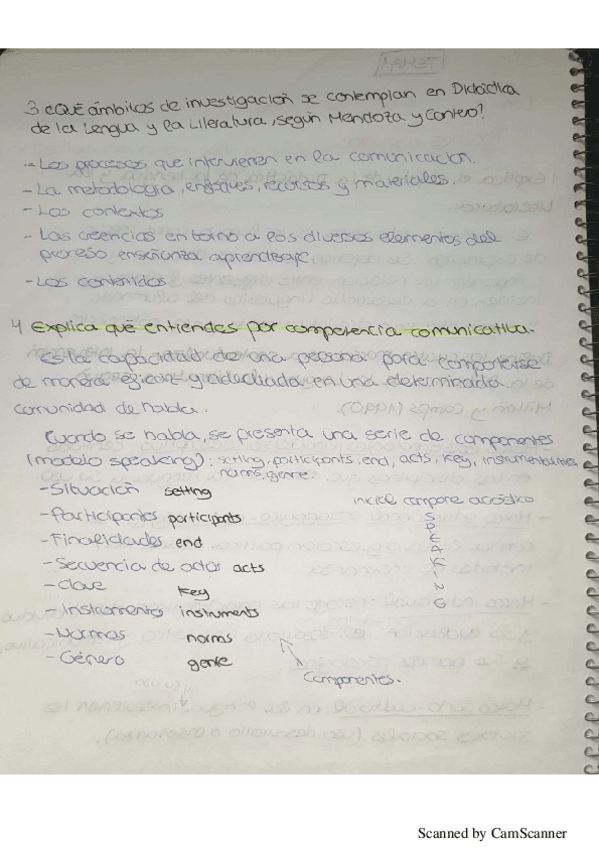 3 ¿Qué ámbitos de investigación se contemplan en Didáctica
de la Lengua y la Literatura, según Mendoza y Contero?
- Los procesos que intervienen en la comunicación.
- La metodología, enfoques, recursos y materiales.
- Los contextos
- Las creencias en torno a los diversos elementos del
proceso enseñanza aprendizaje
- Los contenidos
4 Explica qué entiendes por competencia comunicativa.
Es la capacidad de una persona para comportarse
de manera eficaz y adecuada en una determinada
comunidad de habla.
Cuando se habla, se presenta una serie de componentes
(modelo speaking): setting, participants, end, acts, key, instrumentalities,
norms, genre.
- Situación setting
- Participantes participants
- Finalidades end
- Secuencia de actos acts
- Clave key
- Instrumentos instruments
- Normas norms
- Género genre
inicial compone acróstico
S
P
E
A
K
I
N
G
Componentes.
Scanned by CamScanner